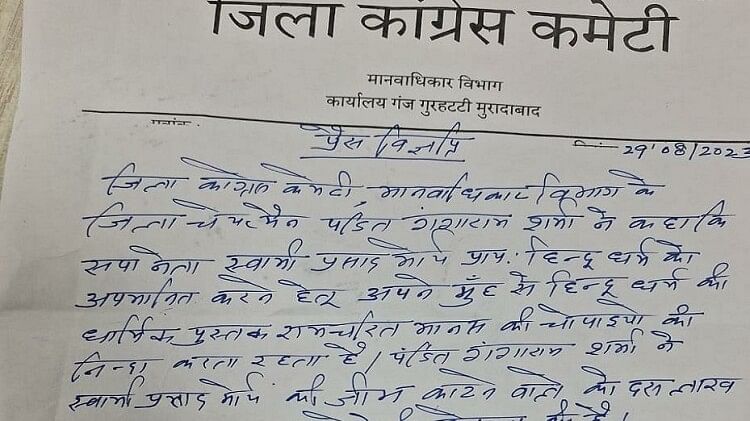 जिला कांग्रेस कमेटी
मानवाधिकार विभाग
कार्यालय गंज गुरहटटी मुरादाबाद
प्रेस विज्ञप्ति
29/08/2023
जिला कांग्रेस कमेटी मानवाधिकार विभाग के
जिला चेयरमैन पंडित गंगाराम शर्मा ने कहा कि
सपा नेता स्वामी प्रसाद मौर्य प्राय: हिन्दू धर्म को
अपमानित करने हेतू अपने मुँह से हिन्दू धर्म की
धार्मिक पुस्तक रामचरित मानस की चोपाइयो की
निन्दा करता रहता है। पंडित गंगाराम शर्मा ने
स्वामी प्रसाद मौर्य की जीभ काटने वाले को दस लाख